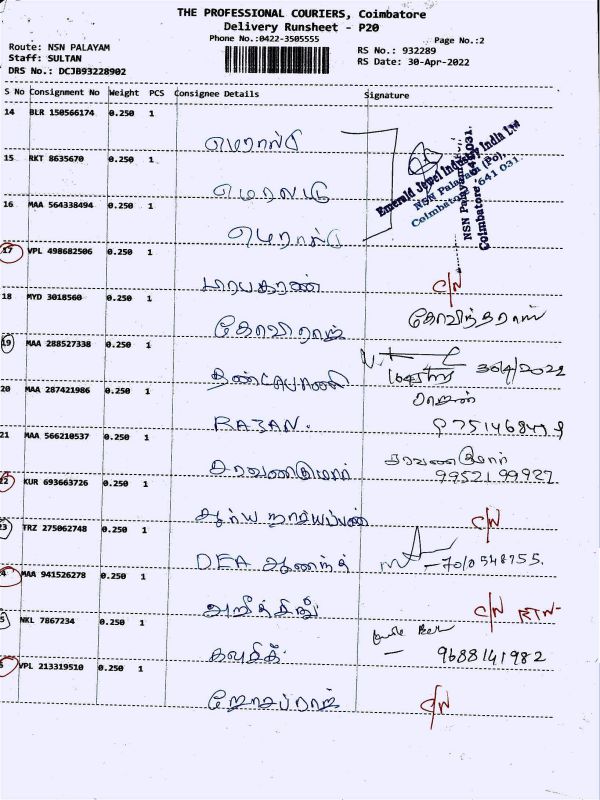 THE PROFESSIONAL COURIERS, Coimbatore
Delivery Runsheet - P20
Phone No.:0422-3505555
Page No.:2
Route: NSN PALAYAM
RS No.: 932289
Staff: SULTAN
RS Date: 30-Apr-2022
DRS No.: DCJB93228902
S No Consignment No Weight PCS Consignee Details Signature
14 BLR 150566174 0.250 1
எமரால்டு
15 RKT 8635670 0.250 1
எமரால்டு
Emerald Jewel Industry India Ltd
NSN Palayam (Po),
Coimbatore 641 031.
NSN Palayam
Coimbatore 641 031.
16 MAA 564338494 0.250 1
எமரால்டு
17 VPL 498682506 0.250 1
C/N
18 MYD 3018560 0.250 1
கோவிராஜ் கோவிந்தராஸ்
19 MAA 288527338 0.250 1
30/4/2022
தண்டபாணி
20 MAA 287421986 0.250 1
ராஜன்
RAJAN.
21 MAA 566210537 0.250 1
சரவணகுமார் சரவணகுமார்
99521 99927
22 KUR 693663726 0.250 1
C/N
23 TRZ 275062748 0.250 1
DEA ஆனந்த் - 7010548755.
24 MAA 941526278 0.250 1
C/N RTN-
25 NKL 7867234 0.250 1
கவுமிக் - 9688141982
26 VPL 213319510 0.250 1
ஜோசப்ராஜ் C/N